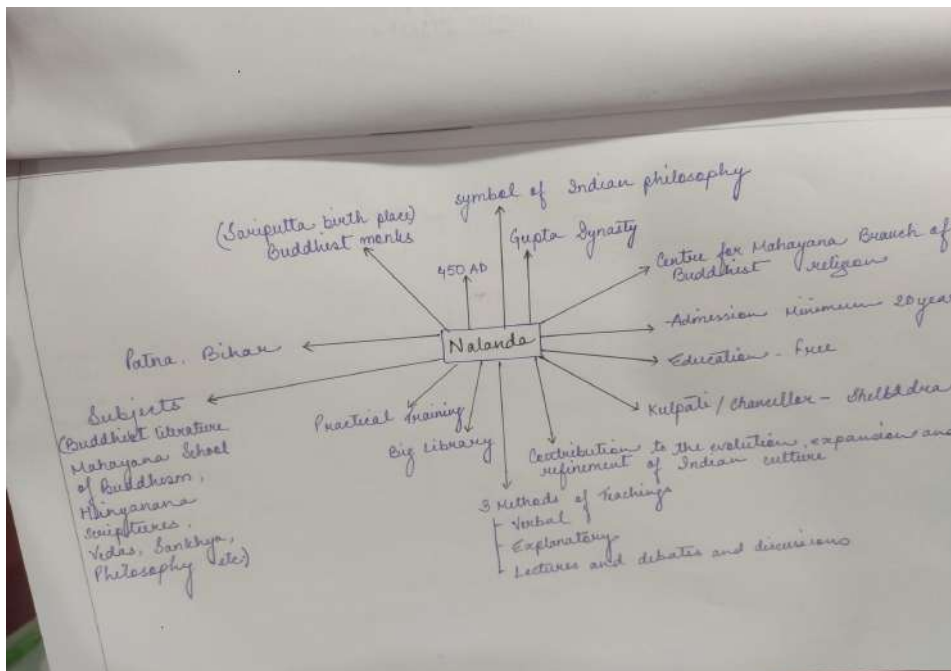 symbol of Indian philosophy
(Sariputta birth place)
Buddhist monks
450 AD
Gupta Dynasty
Centre for Mahayana Branch of
Buddhist religion
Admission Minimum 20 year
Nalanda
Patna, Bihar
Education - Free
Kulpati / Chancellor -
Subjects
(Buddhist literature
Mahayana School
of Buddhism,
Hinyanana
Scriptures,
Vedas, Sankhya,
Philosophy etc)
Practical Training
Big Library
Contribution to the evolution, expansion and
refinement of Indian culture
3 Methods of Teachings
- Verbal
- Explanatory
- Lectures and debates and discussions